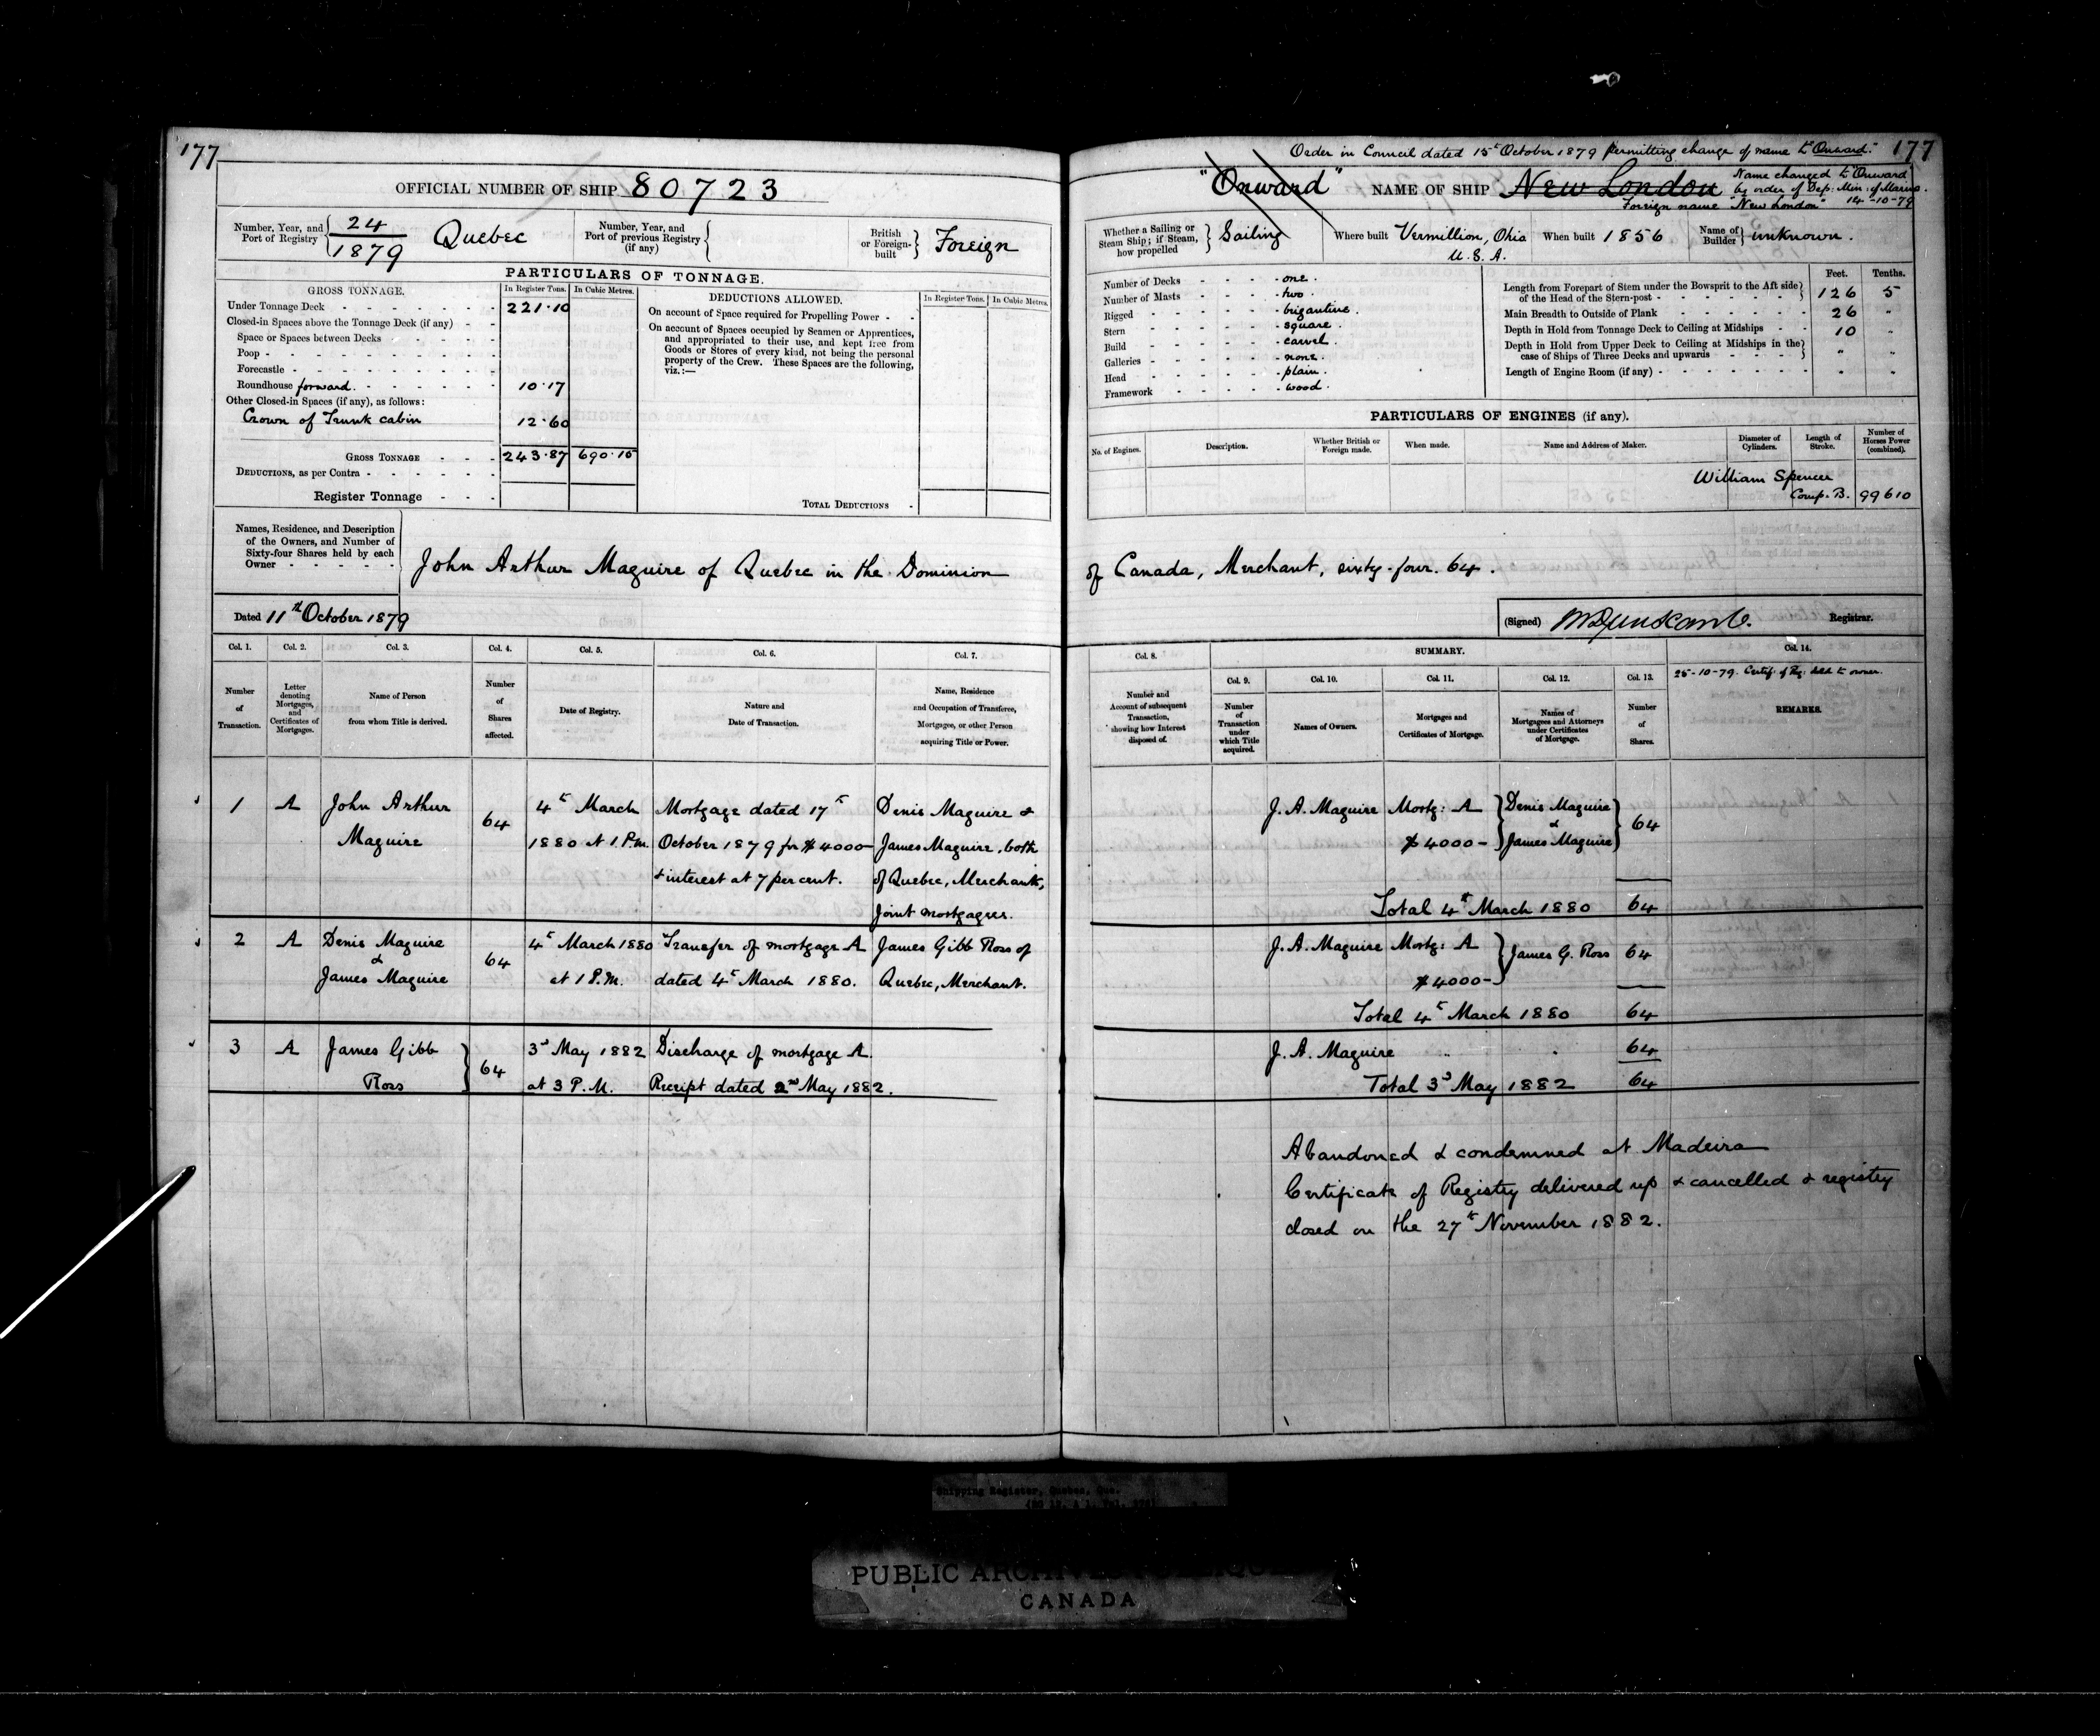 177
OFFICIAL NUMBER OF SHIP 80723
Number, Year, and Port of Registry 24/1879 Quebec
Number, Year, and Port of previous Registry (if any)
British or Foreign-built Foreign
PARTICULARS OF TONNAGE.
GROSS TONNAGE. In Register Tons. In Cubic Metres.
Under Tonnage Deck 221.10
Closed-in Spaces above the Tonnage Deck (if any)
Space or Spaces between Decks
Poop
Forecastle
Roundhouse forward. 10.17
Other Closed-in Spaces (if any), as follows:
Crown of Trunk cabin 12.60
GROSS TONNAGE 243.87 690.15
DEDUCTIONS, as per Contra
Register Tonnage
DEDUCTIONS ALLOWED. In Register Tons. In Cubic Metres.
On account of Space required for Propelling Power
On account of Spaces occupied by Seamen or Apprentices,
and appropriated to their use, and kept free from
Goods or Stores of every kind, not being the personal
property of the Crew. These Spaces are the following,
viz.:—
TOTAL DEDUCTIONS
Names, Residence, and Description
of the Owners, and Number of
Sixty-four Shares held by each
Owner
John Arthur Maguire of Quebec in the Dominion
Dated 11th October 1879
Col. 1. Col. 2. Col. 3. Col. 4. Col. 5. Col. 6. Col. 7.
Number of Transaction.
Letter denoting Mortgages, and Certificates of Mortgages.
Name of Person from whom Title is derived.
Number of Shares affected.
Date of Registry.
Nature and Date of Transaction.
Name, Residence and Occupation of Transferee, Mortgagee, or other Person acquiring Title or Power.
1 A John Arthur 64 4th March Mortgage dated 17th Denis Maguire &
Maguire 1880 at 1 P.m. October 1879 for $4000 James Maguire, both
& interest at 7 per cent. of Quebec, Merchants,
Joint mortgagees.
2 A Denis Maguire 64 4th March 1880 Transfer of mortgage A James Gibb Ross of
& James Maguire at 1 P.M. dated 4th March 1880. Quebec, Merchant.
3 A James Gibb 64 3d May 1882 Discharge of mortgage A.
Ross at 3 P.M. Receipt dated 2nd May 1882.
Order in Council dated 15th October 1879 permitting change of name to "Onward." 177
"Onward" NAME OF SHIP New London
Name changed to "Onward"
by order of Dep: Min: of Marine.
Foreign name "New London" 14-10-79
Whether a Sailing or Steam Ship; if Steam, how propelled Sailing
Where built Vermillion, Ohio
U.S.A.
When built 1856
Name of Builder unknown.
Number of Decks one.
Number of Masts two.
Rigged brigantine.
Stern square.
Build carvel.
Galleries none.
Head plain.
Framework wood.
Feet. Tenths.
Length from Forepart of Stem under the Bowsprit to the Aft side
of the Head of the Stern-post 126 5
Main Breadth to Outside of Plank 26 "
Depth in Hold from Tonnage Deck to Ceiling at Midships 10 "
Depth in Hold from Upper Deck to Ceiling at Midships in the
case of Ships of Three Decks and upwards " "
Length of Engine Room (if any) " "
PARTICULARS OF ENGINES (if any).
No. of Engines.
Description.
Whether British or Foreign made.
When made.
Name and Address of Maker.
Diameter of Cylinders.
Length of Stroke.
Number of Horses Power (combined).
William Spencer
Comp. B. 99610
of Canada, Merchant, sixty-four. 64.
(Signed) Registrar.
Col. 8. SUMMARY. Col. 14.
Col. 9. Col. 10. Col. 11. Col. 12. Col. 13.
25-10-79. Certif. of Reg.
Number and Account of subsequent Transaction, showing how Interest disposed of.
Number of Transaction under which Title acquired.
Names of Owners.
Mortgages and Certificates of Mortgage.
Names of Mortgagees and Attorneys under Certificates of Mortgage.
Number of Shares.
REMARKS.
J. A. Maguire Mortg: A Denis Maguire
& 64
$4000- James Maguire
Total 4th March 1880 64
J. A. Maguire Mortg: A James G. Ross 64
$4000-
Total 4th March 1880 64
J. A. Maguire 64
Total 3d May 1882 64
Abandoned & condemned at Madeira
Certificate of Registry delivered up & cancelled & registry
closed on the 27th November 1882.
Shipping Register, Quebec, Que.
PUBLIC
CANADA